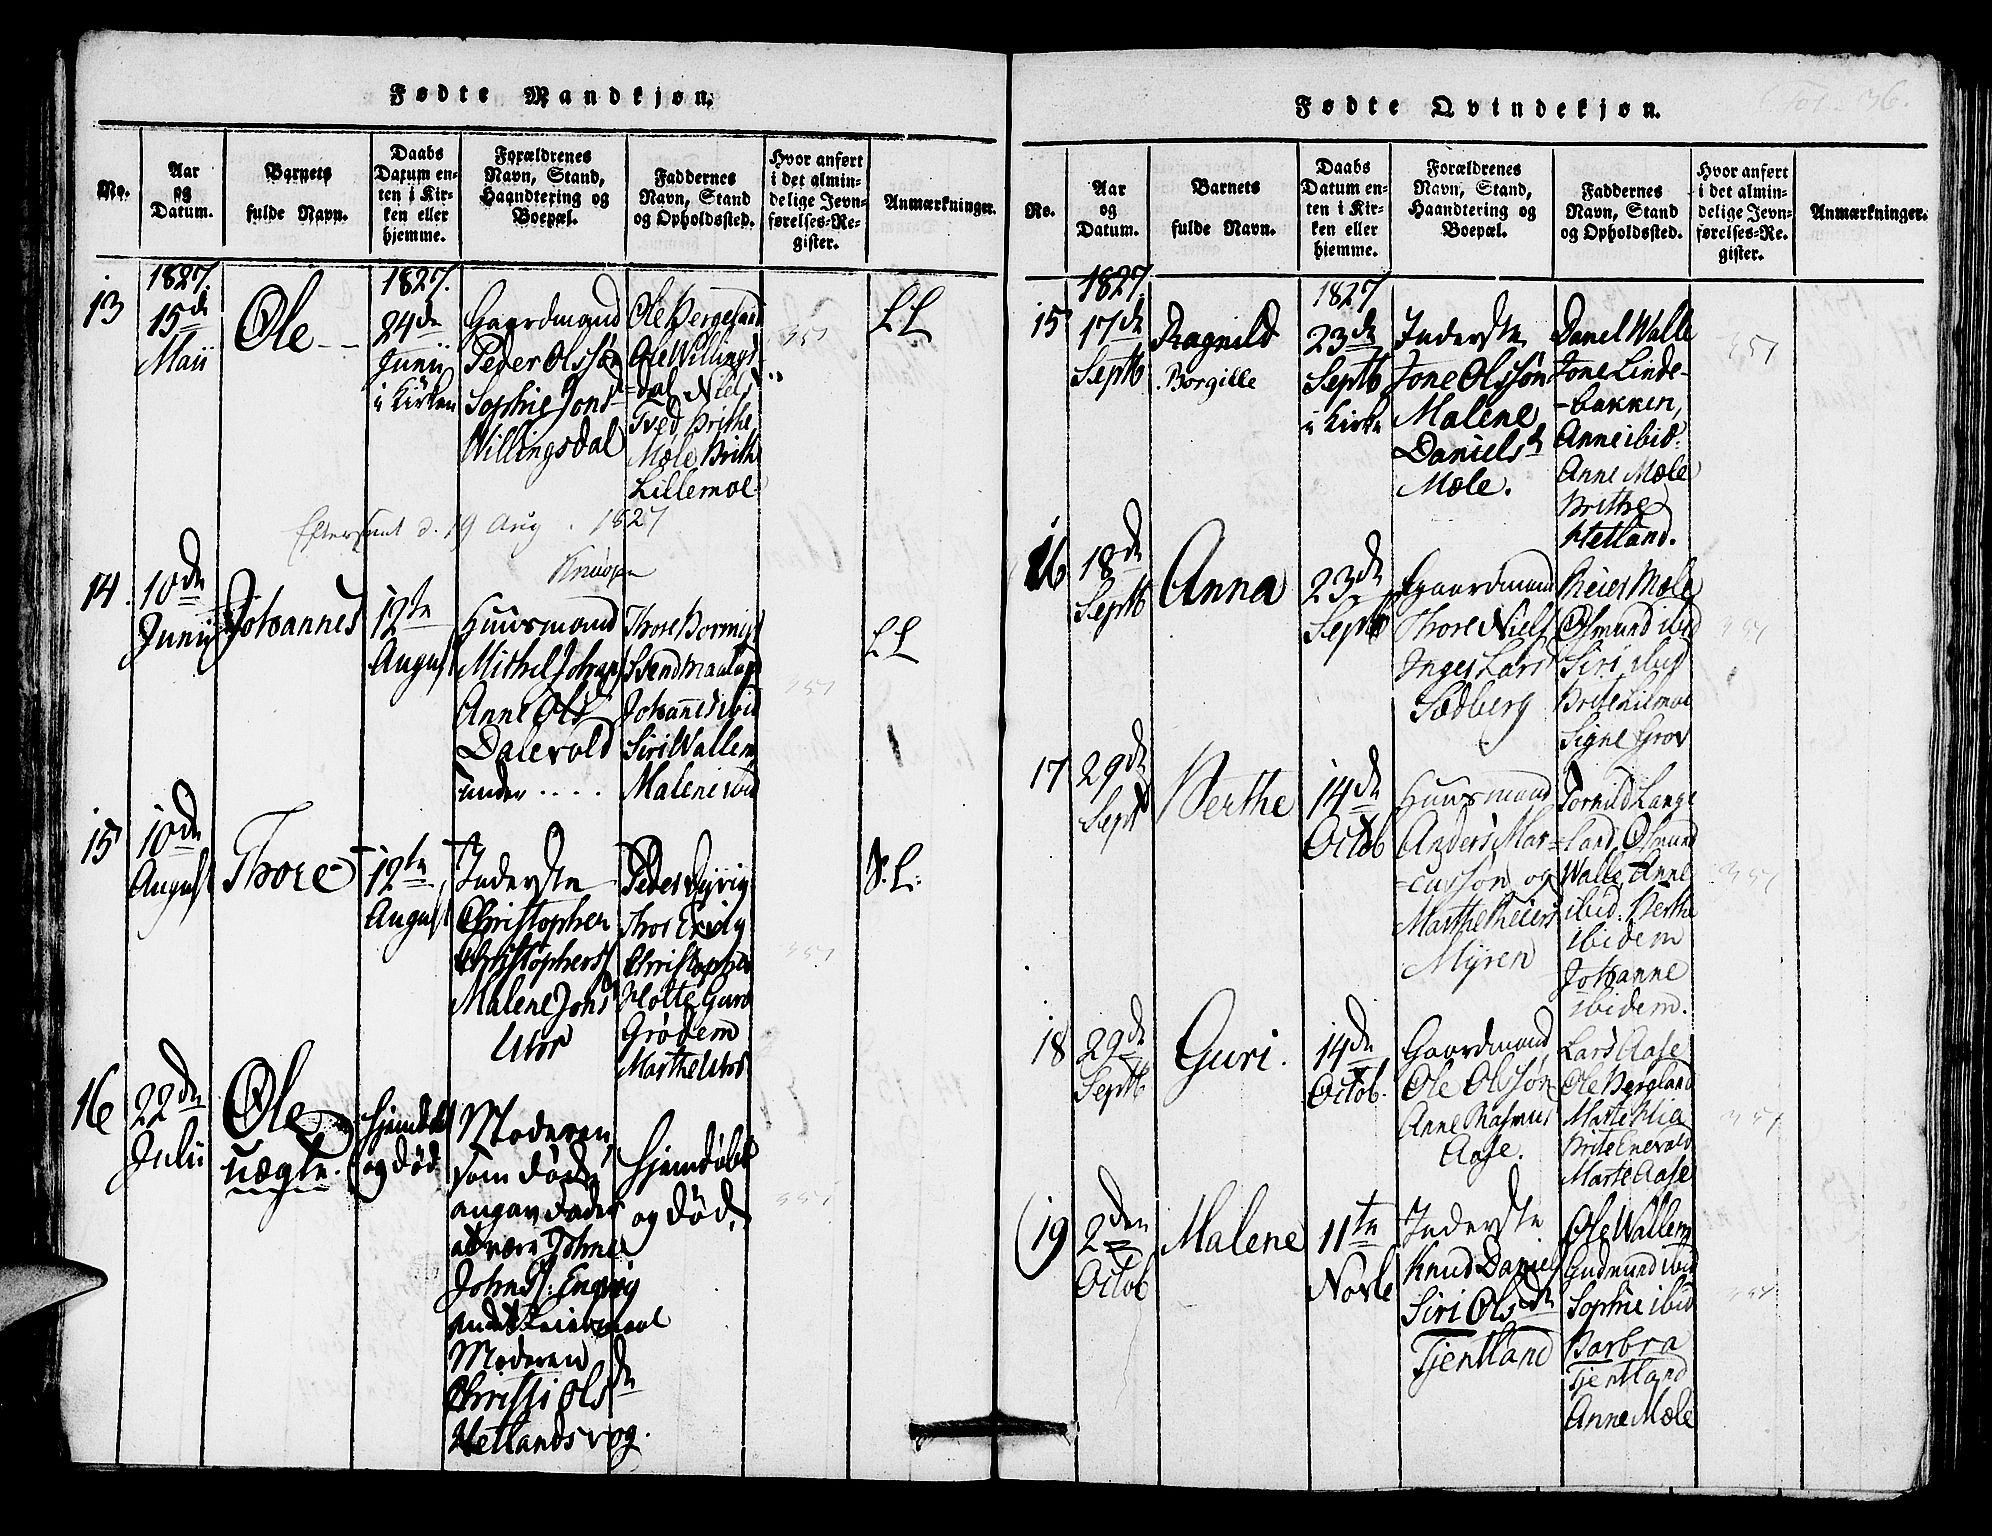 Fødte Mandkjøn.
No.
Aar
og
Datum.
Barnets
fulde Navn.
Daabs
Datum en-
ten i Kir-
ken eller
hjemme.
Forældrenes
Navn, Stand,
Haandtering og
Boepæl.
Faddernes
Navn, Stand
og Opholdssted.
Hvor anført
i det almin-
delige Jevn-
førelses-Re-
gister.
Anmærkninger.
13
1827.
15de
Maii
Ole
1827.
24de
Junii
i Kirken
Gaardmand
Peder Olssøn
Sophie Jons
Willingsdal
Ole Bergesaa
Ole Willings-
dal Niels
Tved Brithe
Mæle Brithe
Lillemoe
351
LL
d. 19 Aug. 1827
14.
10de
Junii
Johannes
12te
August
Huusmand
Mithel Johans
Anne Ols
Dalevold
under ....
Thore
Svend
Johannes ibid
Siri Wallem
Malene ibid
351
LL
15
10de
August
Thore
12te
August
Inderste
Christopher
Christophers
Malene Jons
Peder
Thor
Christopher
Holte Guro
Grødem
Marthe
351
S.L.
16
22de
Julii
Ole
uægte.
Hjemdøbt
og død
Moderen
som døde
angav
at være Johne
Johns:
Moderen
Christi Olsd
Hetlandsvog.
Hjemdøbt
og død.
351
Fødte Qvindekjøn.
Fol. 36.
No.
Aar
og
Datum.
Barnets
fulde Navn.
Daabs
Datum en-
ten i Kir-
ken eller
hjemme.
Forældrenes
Navn, Stand,
Haandtering og
Boepæl.
Faddernes
Navn, Stand
og Opholdssted.
Hvor anført
i det almin-
delige Jevn-
førelses-Re-
gister.
Anmærkninger.
15
1827
17de
Septb
Ragnild
Borgille
1827
23de
Septb
i Kirke
Inderste
Jone Olssøn
Malene
Daniels
Mæle.
Danel Walle
Jone Linde-
-bakken,
Anne ibid.
Anne Mæle
Brithe
Hetland.
351
16
18de
Septb
Anna
23de
Septb
Gaardmand
Thore Niels
Inger Lars
Sødberg
Reier Mæle
Osmund ibid
Siri ibid
Brite Lilmoe
Signe Grov
351
17
29de
Sept
Berthe
14de
Octob
Huusmand
Anders Mar-
-cussøn og
Marthe Reiers
Myren
Tornild Lange
land, Osmund
Walle, Anne
ibid. Berthe
ibidem
Johanne
ibidem.
351
18
29de
Septb
Guri.
14de
Octob.
Gaardmand
Ole Olssøn
Anne Rasmus
Aase.
Lars Aase
Ole Bergland
Marte Klia
Brite Enevald
Marte Aase
351
19
2den
Octob
Malene
11te
Novbe
Inderste
Knud Daniels
Siri Olsdr
Tjentland
Ole Wallem
Gudmund ibid
Sophie ibid
Barbra
Tjentland
Anne Mæle
351